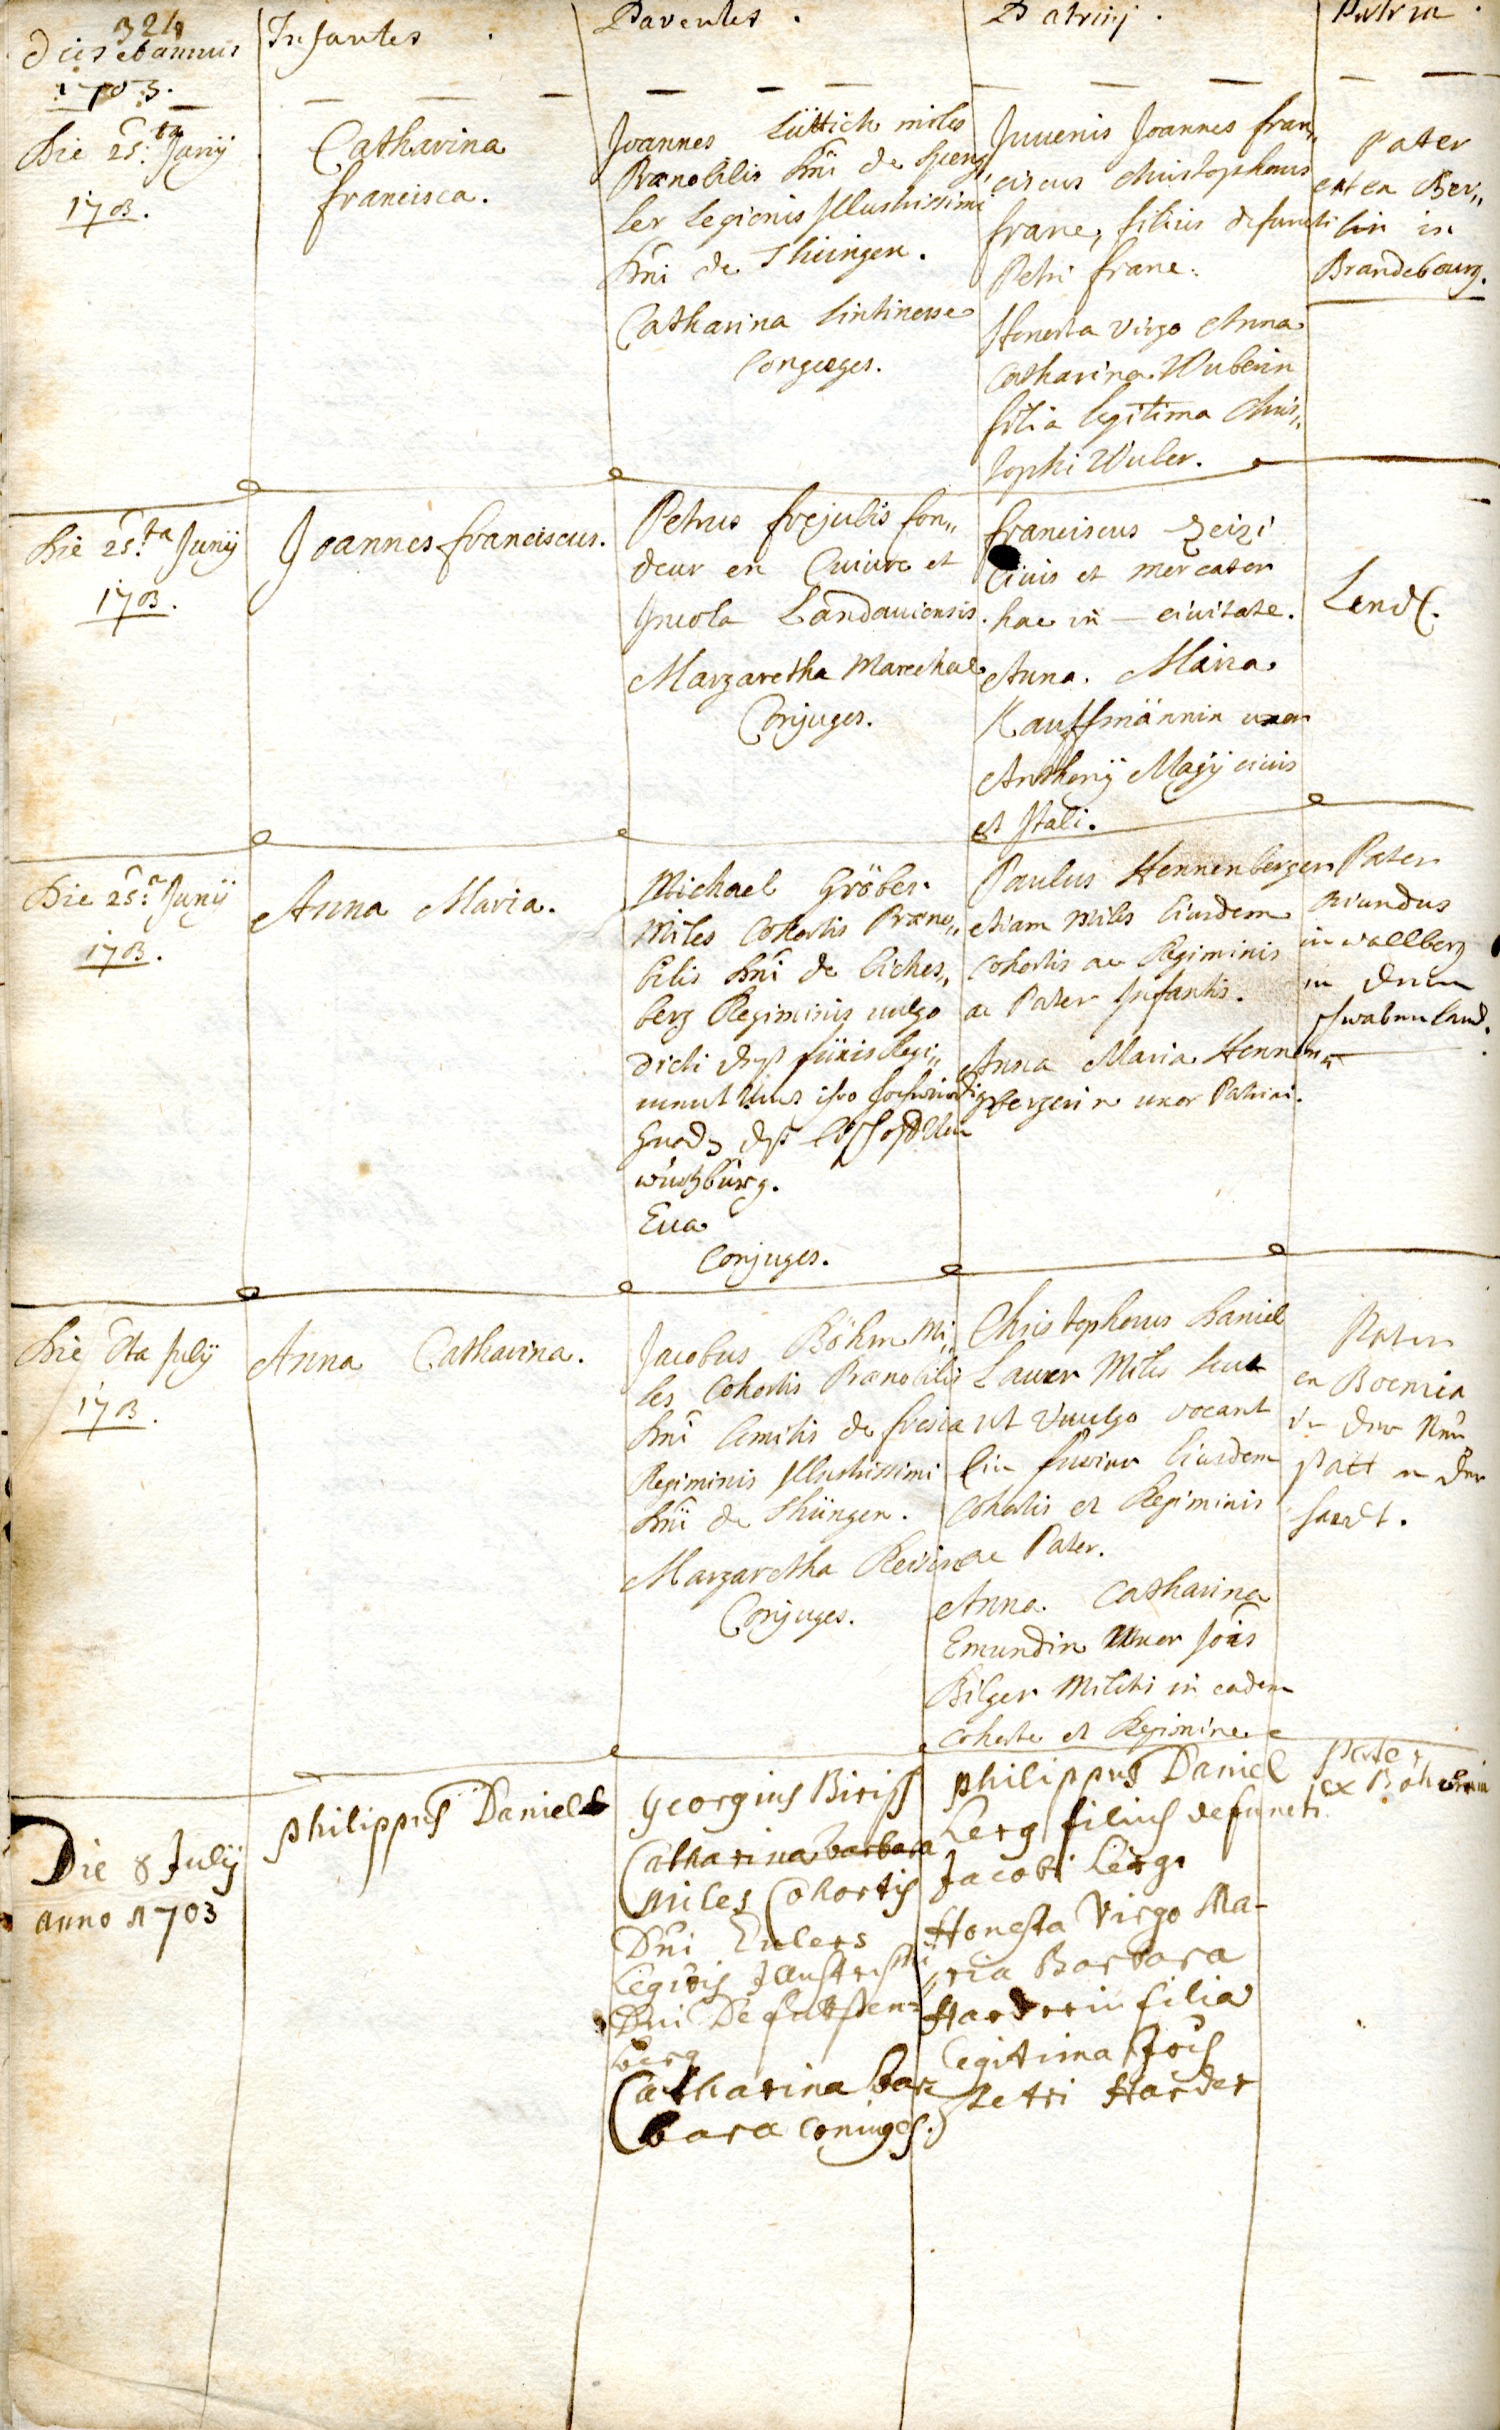 324
Dies et annus
1703.
Infantes
Parentes.
Patrinj.
Patria.
Die 25:ta Junij
1703.
Catharina
francisca.
Joannes Lüttich miles
Prænobilis Dni de
ler legionis Illustrissimi
Dni de Thüngen.
Catharina
Conjuges.
Juuenis Joannes fran„
ciscus Christophorus
franc, filius defuncti
Petri franc.
Honesta virgo Anna
Catharina Wuberin
filia legitima Chris„
tophi Wuber.
Pater
est ex Ber„
lin in
Brandebourg.
Die 25.ta Junij
1703.
Joannes franciscus.
Petrus frejulis fon„
deur en Cuiure et
Incola Landauiensis.
Margaretha Marechal
Conjuges.
franciscus Zeizi
Ciuis et mercator
hac in – ciuitate.
Anna Maria
Kauffmännin uxor
Anthonij Magij ciuis
et Itali.
Die 25:a Junij
1703.
Anna Maria.
Michael Gröber
Miles Cohortis Præno„
bilis Dni de Liches„
berg Regiminis uulgo
dicti
würtzburg.
Eua
Conjuges.
Paulus Hennenberger
etiam miles Eiusdem
Cohortis ac Regiminis
ac Pater Infantis.
Anna Maria Hennen„
bergerin uxor Patrini.
Pater
oriundus
in wallberg
in dem
schwabenland.
Die 8ta Julij
1703.
Anna Catharina.
Jacobus Böhm Mi„
les Cohortis Prænobilis
Dni Comitis de
Regiminis Illustrissimi
Dni de Thüngen.
Margaretha
Conjuges.
Christophorus Daniel
Lauer Miles seu
ut Vuulgo vocant
Ein Eiusdem
Cohortis et Regiminis
ac Pater.
Anna Catharina
Emundin Uxor Jois
Bilger Militis in eadem
Cohorte et Regimine
Pater
ex Boemia
Die 8 Julij
anno 1703
Philippus Daniel
Georgius Biriss
Catharina barbara
Miles Cohortis
Dni Eulers
Legiois Illustrissmi
Dni De furstem=
berg
Catharina bar=
bara coniuges.
Philippus Daniel
Lerg filius defuncti
Jacobi Lerg
Honesta Virgo Ma-
ria Barbara
Harderin filia
legitima Jois
Petri Harder
Pater
ex